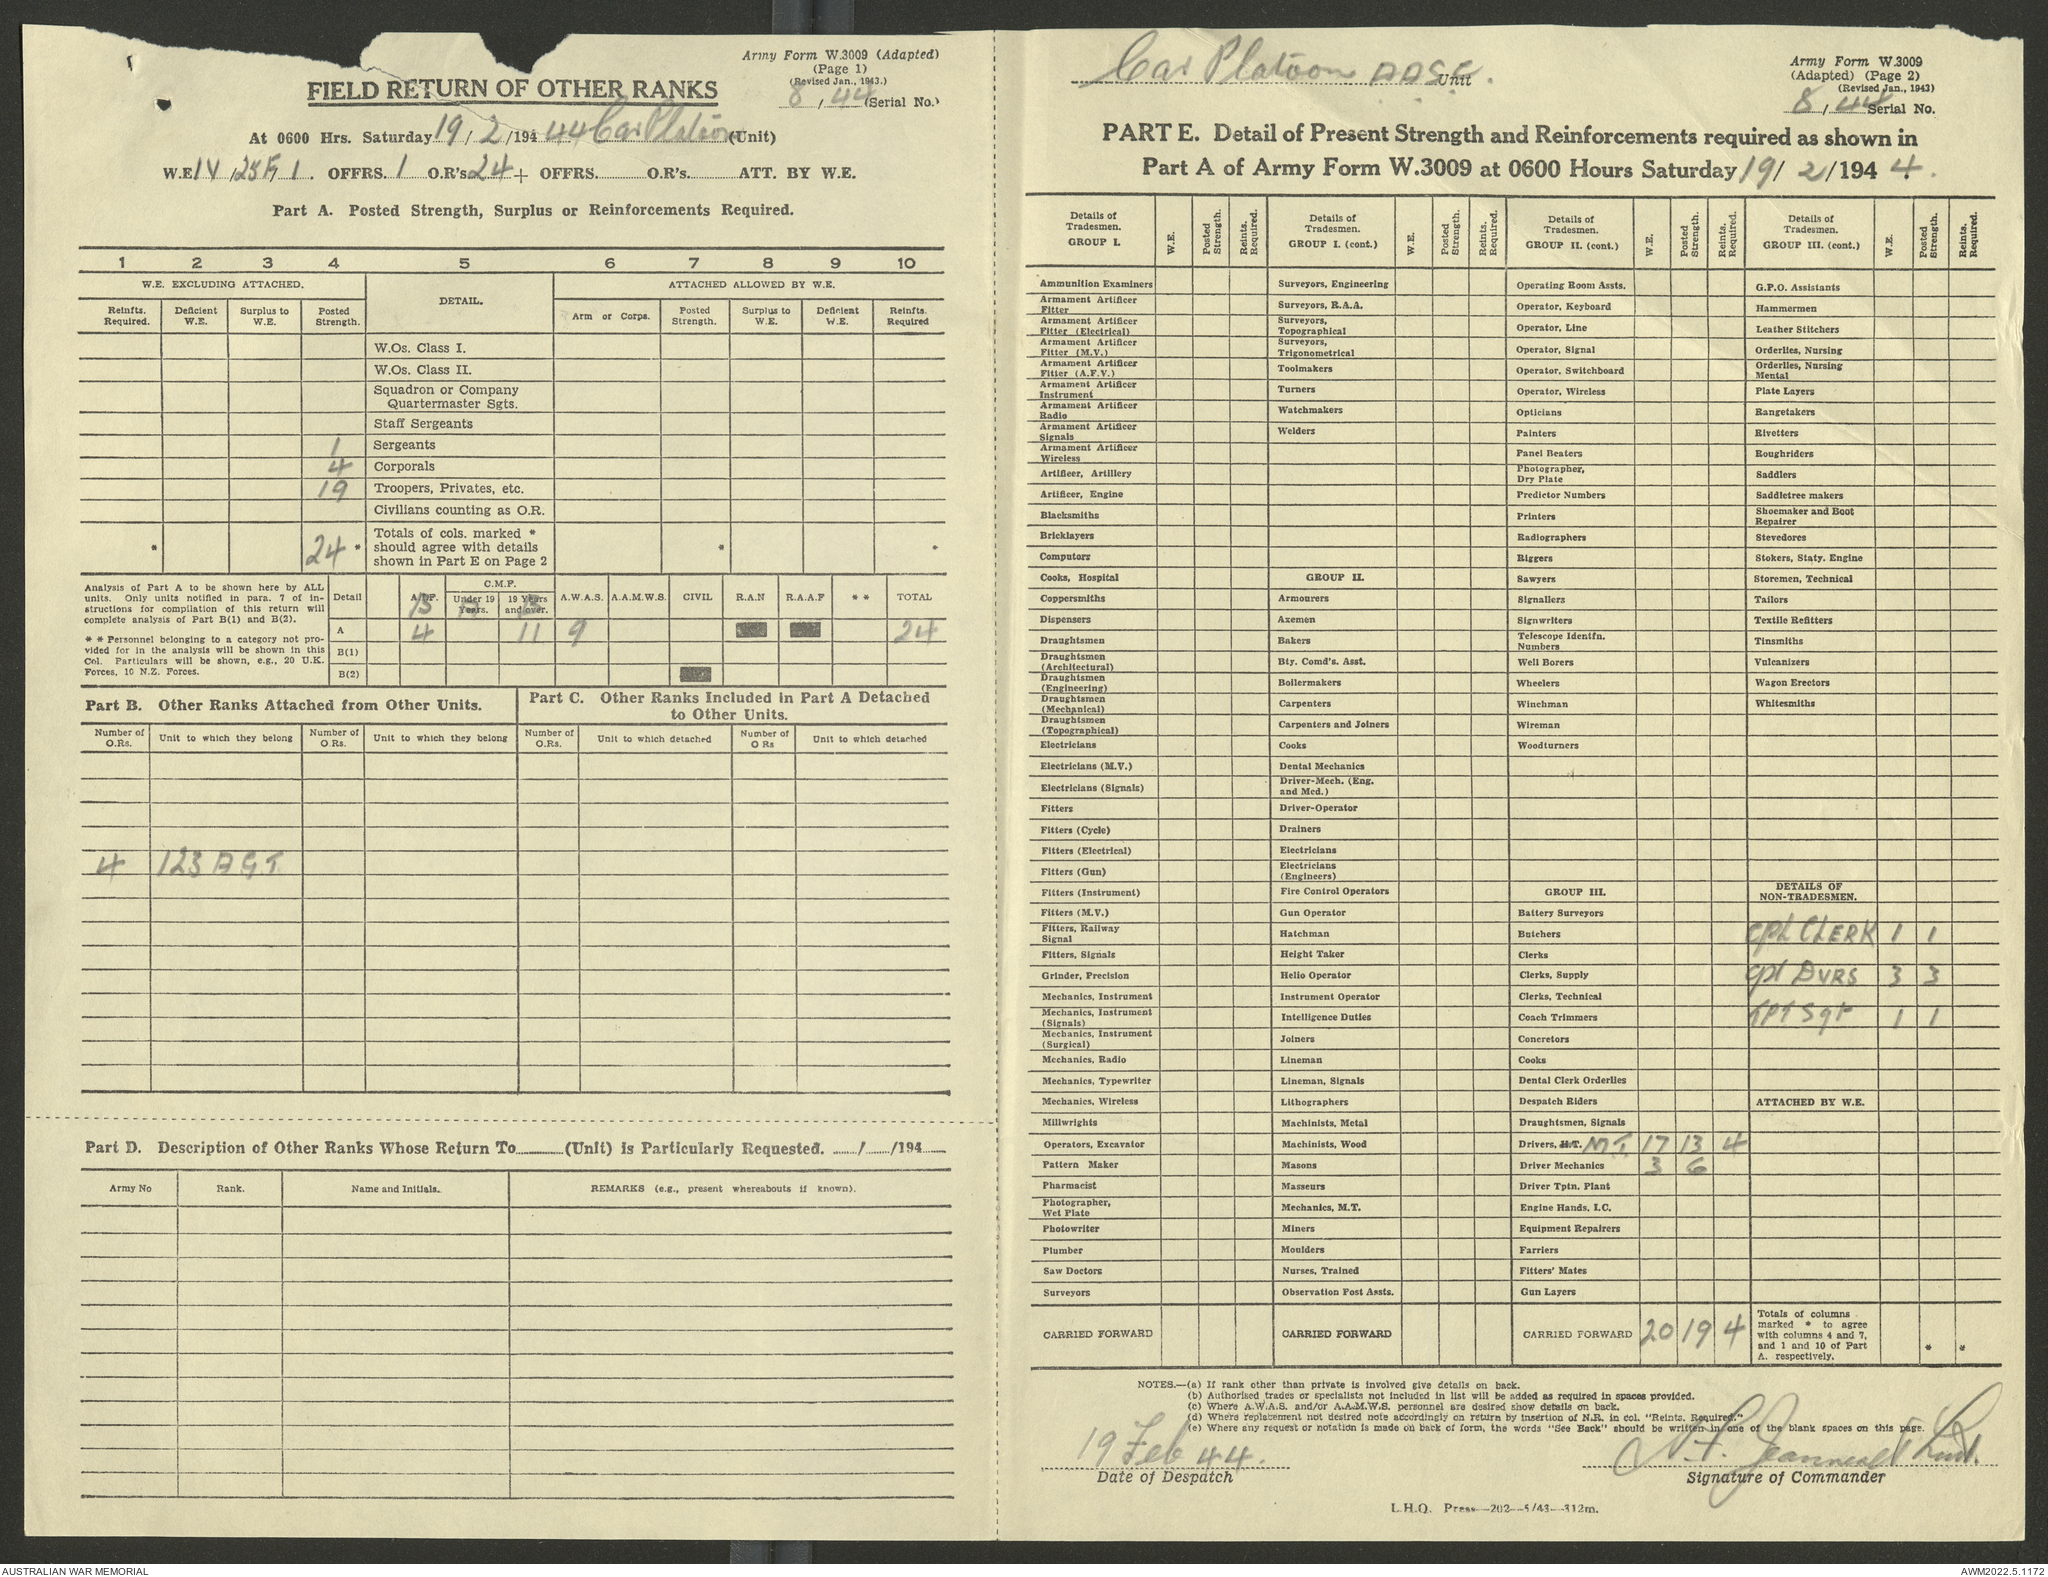 Army Form W.3009 (Adapted)
(Page 1)
(Revised Jan., 1943.)
FIELD RETURN OF OTHER RANKS
8 / 44 (Serial No.)
At 0600 Hrs. Saturday 19 / 2 /194 44 Car Platoon (Unit)
W.E. OFFRS. 1 O.R's. 24 + OFFRS. O.R's. ATT. BY W.E.
Part A. Posted Strength, Surplus or Reinforcements Required.
1 2 3 4 5 6 7 8 9 10
W.E. EXCLUDING ATTACHED. DETAIL. ATTACHED ALLOWED BY W.E.
Reinfts. Required. Deficient W.E. Surplus to W.E. Posted Strength. Arm or Corps. Posted Strength. Surplus to W.E. Deficient W.E. Reinfts. Required
W.Os. Class I.
W.Os. Class II.
Squadron or Company
Quartermaster Sgts.
Staff Sergeants
1 Sergeants
4 Corporals
19 Troopers, Privates, etc.
Civilians counting as O.R.
Totals of cols. marked *
* 24 * should agree with details * *
shown in Part E on Page 2
Analysis of Part A to be shown here by ALL
units. Only units notified in para. 7 of in-
structions for compilation of this return will
complete analysis of Part B(1) and B(2).
* * Personnel belonging to a category not pro-
vided for in the analysis will be shown in this
Col. Particulars will be shown, e.g., 20 U.K.
Forces, 10 N.Z. Forces.
C.M.F.
Detail A.I.F. Under 19 Years. 19 Years and over. A.W.A.S. A.A.M.W.S. CIVIL R.A.N R.A.A.F * * TOTAL
A 4 11 9 24
B(1)
B(2)
Part B. Other Ranks Attached from Other Units.
Part C. Other Ranks Included in Part A Detached
to Other Units.
Number of O.Rs. Unit to which they belong Number of O.Rs. Unit to which they belong Number of O.Rs. Unit to which detached Number of O Rs Unit to which detached
4 123 A G T.
Part D. Description of Other Ranks Whose Return To (Unit) is Particularly Requested. / /194
Army No Rank. Name and Initials. REMARKS (e.g., present whereabouts if known).
Car Platoon AASC. Unit
Army Form W.3009
(Adapted) (Page 2)
(Revised Jan., 1943)
8 / 44 Serial No.
PART E. Detail of Present Strength and Reinforcements required as shown in
Part A of Army Form W.3009 at 0600 Hours Saturday 19 / 2 /194 4.
Details of Tradesmen. GROUP I. W.E. Posted Strength. Reints. Required.
Details of Tradesmen. GROUP I. (cont.) W.E. Posted Strength. Reints. Required.
Details of Tradesmen. GROUP II. (cont.) W.E. Posted Strength. Reints. Required.
Details of Tradesmen. GROUP III. (cont.) W.E. Posted Strength. Reints. Required.
Ammunition Examiners
Armament Artificer Fitter
Armament Artificer Fitter (Electrical)
Armament Artificer Fitter (M.V.)
Armament Artificer Fitter (A.F.V.)
Armament Artificer Instrument
Armament Artificer Radio
Armament Artificer Signals
Armament Artificer Wireless
Artificer, Artillery
Artificer, Engine
Blacksmiths
Bricklayers
Computors
Cooks, Hospital
Coppersmiths
Dispensers
Draughtsmen
Draughtsmen (Architectural)
Draughtsmen (Engineering)
Draughtsmen (Mechanical)
Draughtsmen (Topographical)
Electricians
Electricians (M.V.)
Electricians (Signals)
Fitters
Fitters (Cycle)
Fitters (Electrical)
Fitters (Gun)
Fitters (Instrument)
Fitters (M.V.)
Fitters, Railway Signal
Fitters, Signals
Grinder, Precision
Mechanics, Instrument
Mechanics, Instrument (Signals)
Mechanics, Instrument (Surgical)
Mechanics, Radio
Mechanics, Typewriter
Mechanics, Wireless
Millwrights
Operators, Excavator
Pattern Maker
Pharmacist
Photographer, Wet Plate
Photowriter
Plumber
Saw Doctors
Surveyors
CARRIED FORWARD
Surveyors, Engineering
Surveyors, R.A.A.
Surveyors, Topographical
Surveyors, Trigonometrical
Toolmakers
Turners
Watchmakers
Welders
GROUP II.
Armourers
Axemen
Bakers
Bty. Comd's. Asst.
Boilermakers
Carpenters
Carpenters and Joiners
Cooks
Dental Mechanics
Driver-Mech. (Eng. and Med.)
Driver-Operator
Drainers
Electricians
Electricians (Engineers)
Fire Control Operators
Gun Operator
Hatchman
Height Taker
Helio Operator
Instrument Operator
Intelligence Duties
Joiners
Lineman
Lineman, Signals
Lithographers
Machinists, Metal
Machinists, Wood
Masons
Masseurs
Mechanics, M.T.
Miners
Moulders
Nurses, Trained
Observation Post Assts.
CARRIED FORWARD
Operating Room Assts.
Operator, Keyboard
Operator, Line
Operator, Signal
Operator, Switchboard
Operator, Wireless
Opticians
Painters
Panel Beaters
Photographer, Dry Plate
Predictor Numbers
Printers
Radiographers
Riggers
Sawyers
Signallers
Signwriters
Telescope Identfn. Numbers
Well Borers
Wheelers
Winchman
Wireman
Woodturners
GROUP III.
Battery Surveyors
Butchers
Clerks
Clerks, Supply
Clerks, Technical
Coach Trimmers
Concretors
Cooks
Dental Clerk Orderlies
Despatch Riders
Draughtsmen, Signals
Drivers, H.T. M.T. 17 13 4
Driver Mechanics 3 6
Driver Tptn. Plant
Engine Hands, I.C.
Equipment Repairers
Farriers
Fitters' Mates
Gun Layers
CARRIED FORWARD 20 19 4
G.P.O. Assistants
Hammermen
Leather Stitchers
Orderlies, Nursing
Orderlies, Nursing Mental
Plate Layers
Rangetakers
Rivetters
Roughriders
Saddlers
Saddletree makers
Shoemaker and Boot Repairer
Stevedores
Stokers, Staty. Engine
Storemen, Technical
Tailors
Textile Refitters
Tinsmiths
Vulcanizers
Wagon Erectors
Whitesmiths
DETAILS OF NON-TRADESMEN.
Cpl CLERK 1 1
Cpl DVRS 3 3
TPT Sgt 1 1
ATTACHED BY W.E.
Totals of columns
marked * to agree
with columns 4 and 7,
and 1 and 10 of Part
A. respectively. * *
NOTES.—(a) If rank other than private is involved give details on back.
(b) Authorised trades or specialists not included in list will be added as required in spaces provided.
(c) Where A.W.A.S. and/or A.A.M.W.S. personnel are desired show details on back.
(d) Where replacement not desired note accordingly on return by insertion of N.R. in col. "Reints. Required."
(e) Where any request or notation is made on back of form, the words "See Back" should be written in one of the blank spaces on this page.
19 Feb 44.
Date of Despatch
Signature of Commander
L.H.Q. Press—202—5/43—312m.
AUSTRALIAN WAR MEMORIAL
AWM2022.5.1172